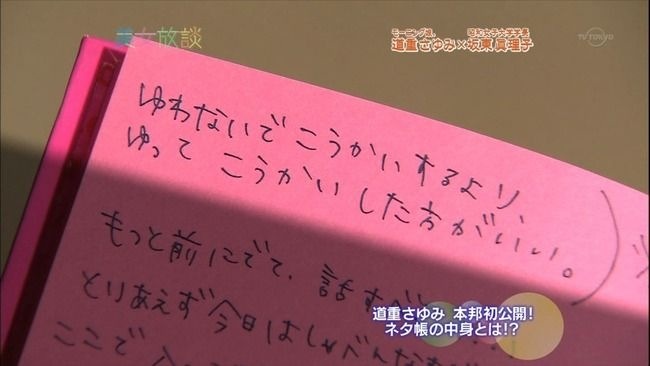 美女放談
モーニング娘。 昭和女子大学学長
道重さゆみ×坂東眞理子
TV TOKYO
ゆわないでこうかいするより、
ゆって こうかいした方がいい。
もっと前にでて、話すべ
とりあえず今日はしゃべんなき
ここで
道重さゆみ 本邦初公開!
ネタ帳の中身とは!?